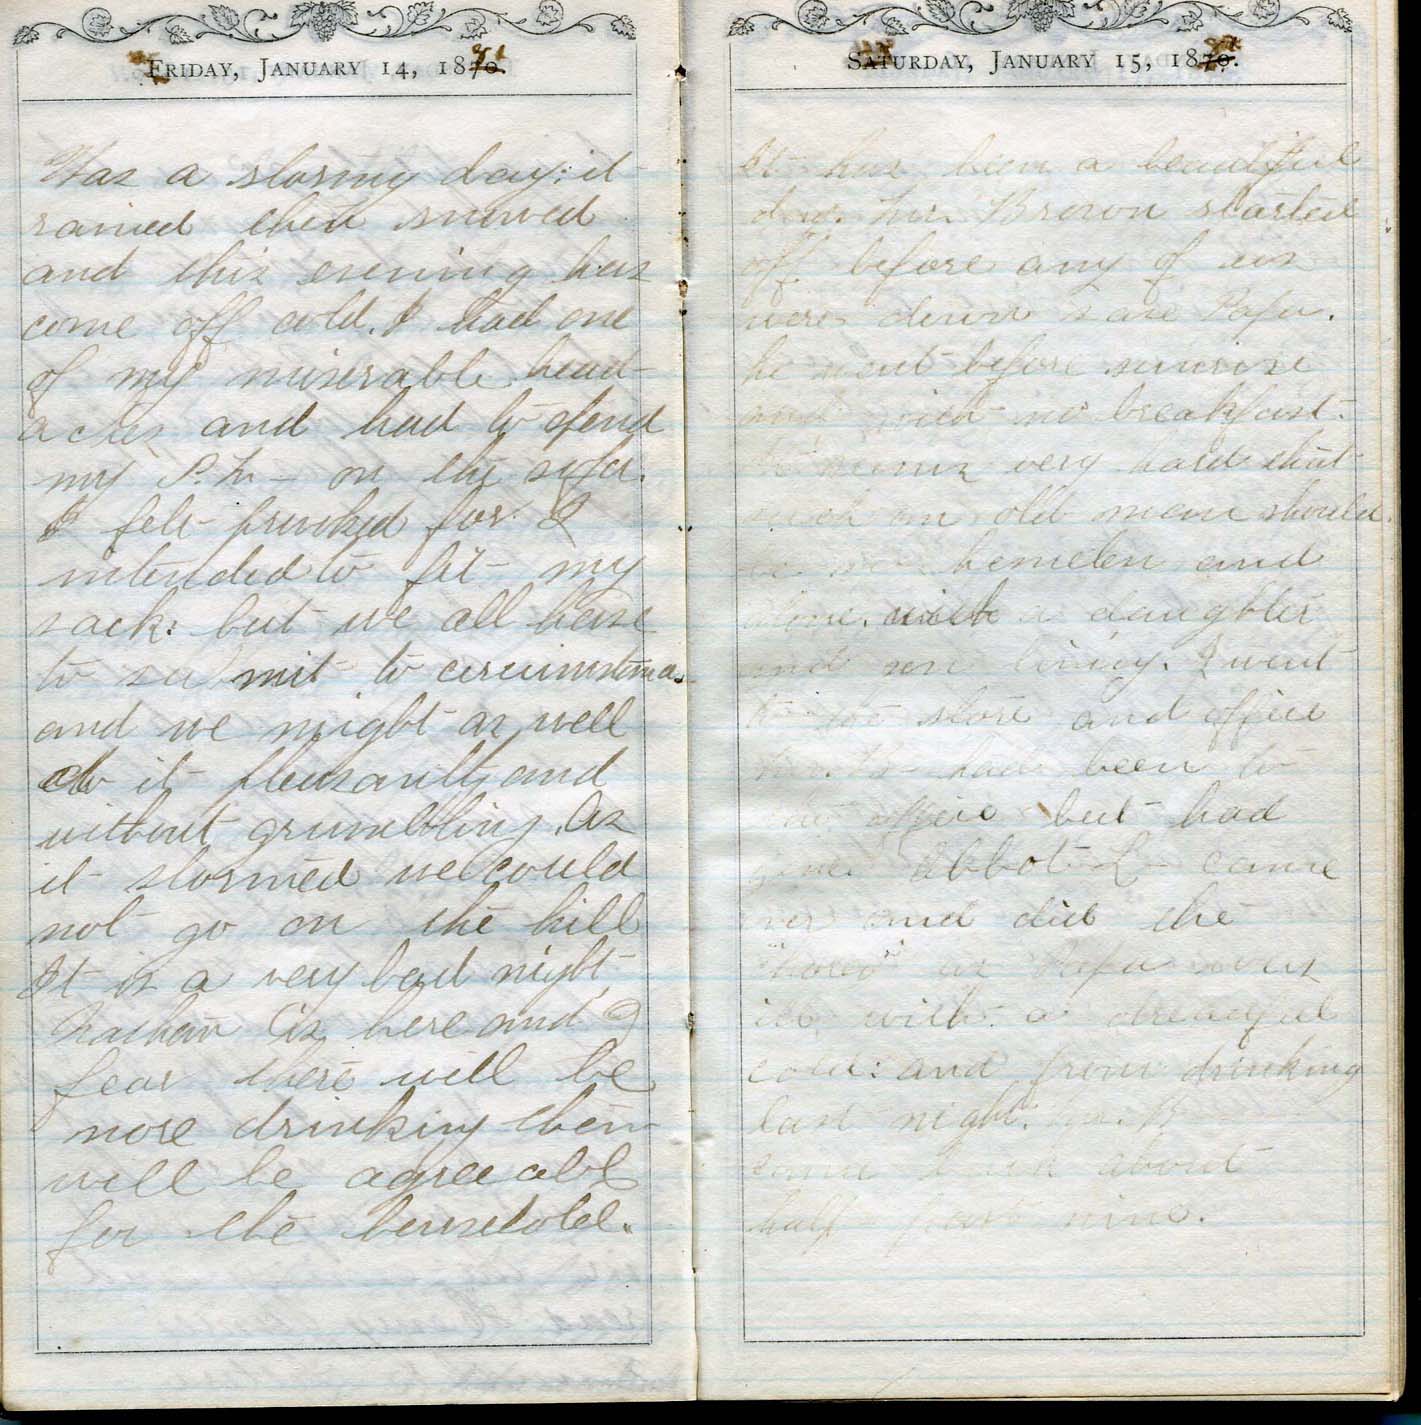 Friday, January 14, 1870.
71
Was a stormy day; it
rained then snowed
and this evening has
come off cold. I had one
of my miserable head-
aches and had to spend
my P.M- on the sofa.
I felt provoked for I
intended to fit my
sack: but we all have
to submit to circumstance.
and we might as well
do it pleasantly and
without grumbling. As
it stormed we could
not go on the hill
It is a very bad night
Nathan is here and I
fear there will be
more drinking then
will be agreeable
for the household.
Saturday, January 15, 1870.
71
It has been a beautiful
day. Mr. Brown started
off before any of us
were down save Papa.
he went before sunrise
and with no breakfast.
It seems very hard that
such an old man should
be so homeless and
alone. with a daughter
and son living. I went
to the store and office
Mr. B- had been to
the office but had
gone. Abbot L- came
over and did the
"chores" as Papa was
ill with a dreadful
cold: and from drinking
last night. Mr. B
came back about
half past nine.